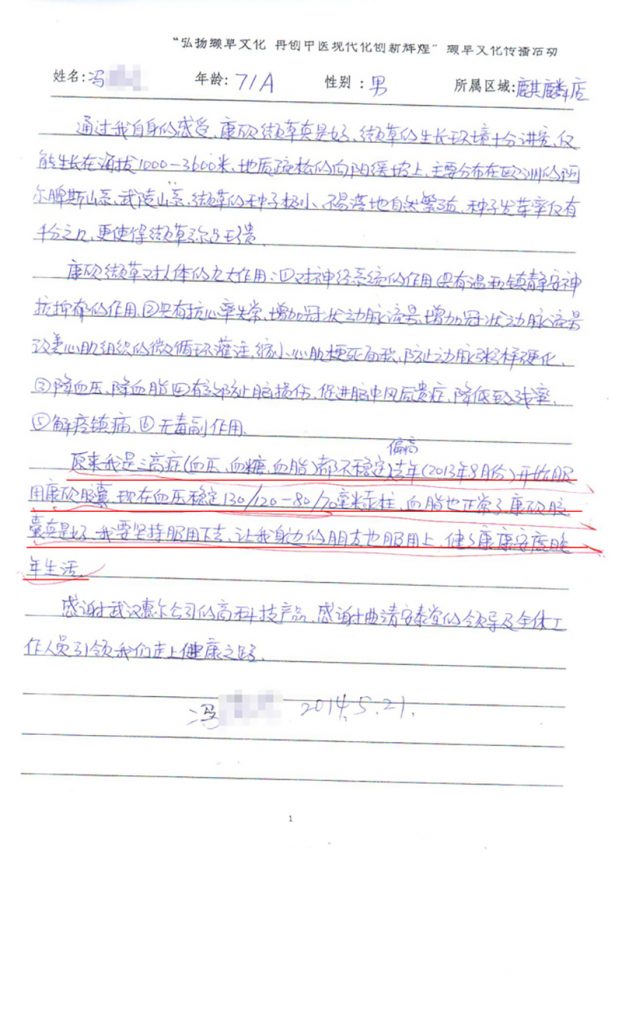 “弘扬缬草文化 再创中医现代化创新辉煌” 缬草文化传播活动
姓名: 冯 年龄: 71A 性别: 男 所属区域: 麒麟店
通过我自身的感受,康欣缬草真是好,缬草的生长环境十分讲究,仅
能生长在海拔1000—3600米,地质疏松的向阳缓坡上,主要分布在欧洲的阿
尔脾斯山系、武陵山系,缬草的种子极小、不易落地自然繁殖,种子发芽率仅有
千分之几,更使得缬草弥足珍贵.
康欣缬草对人体的六大作用:①对神经系统的作用,具有温和镇静安神
抗抑郁的作用.②具有抗心率失常,增加冠状动脉流量,增加冠状动脉流量
改善心肌组织的微循环灌注,缩小心肌梗死面积,防止动脉粥样硬化.
③降血压,降血脂④有效防止脑损伤,促进脑中风后遗症,降低致残率.
⑤解痉镇痛.⑥无毒副作用.
偏高
原来我是三高症(血压、血糖、血脂)都不稳定,去年(2013年9月份)开始服
用康欣胶囊,现在血压稳定130/120—80/70毫米汞柱,血脂也正常了,康欣胶
囊真是好,我要坚持服用下去,让我身边的朋友也服用上,健健康康安度晚
年生活.
感谢武汉惠尔公司的高科技产品,感谢曲靖安泰堂的领导及全体工
作人员引领我们走上健康之路.
冯 2014.5.21.
1